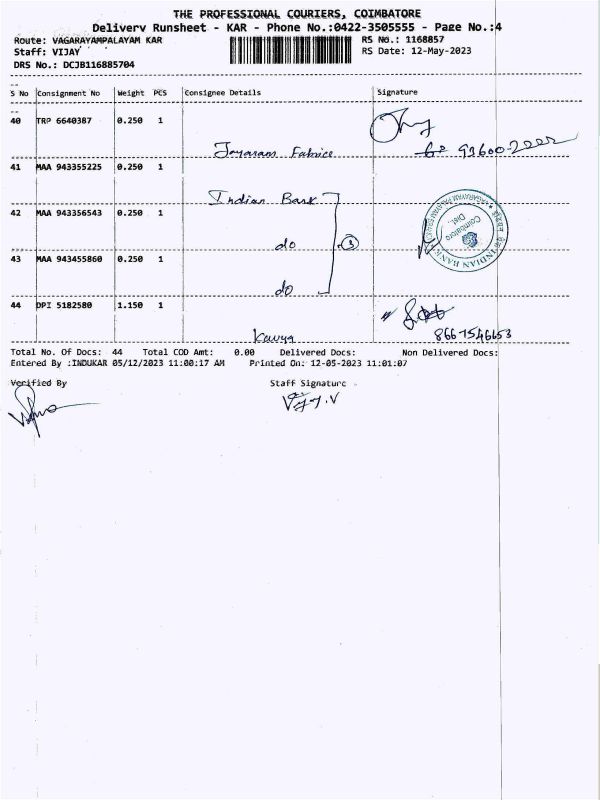 THE PROFESSIONAL COURIERS, COIMBATORE
Delivery Runsheet - KAR - Phone No.:0422-3505555 - Page No.:4
Route: VAGARAYAMPALAYAM KAR
RS No.: 1168857
Staff: VIJAY
RS Date: 12-May-2023
DRS No.: DCJB116885704
S No Consignment No Weight PCS Consignee Details Signature
40 TRP 6640387 0.250 1
Jayaram Fabrics 93600-22002
41 MAA 943355225 0.250 1
Indian Bank
42 MAA 943356543 0.250 1
do 3
43 MAA 943455860 0.250 1
do
INDIAN BANK
Coimbatore
Dist.
44 DPI 5182580 1.150 1
Kavya 8667546653
Total No. Of Docs: 44 Total COD Amt: 0.00 Delivered Docs: Non Delivered Docs:
Entered By :INDUKAR 05/12/2023 11:00:17 AM Printed On: 12-05-2023 11:01:07
Verified By Staff Signature